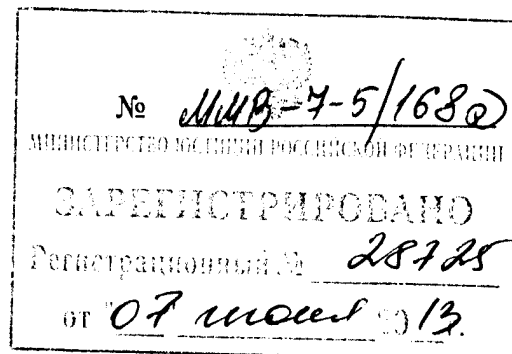 № ММВ-7-5/168@
МИНИСТЕРСТВО ЮСТИЦИИ РОССИЙСКОЙ ФЕДЕРАЦИИ
ЗАРЕГИСТРИРОВАНО
Регистрационный № 28725
от "07 июня 2013.